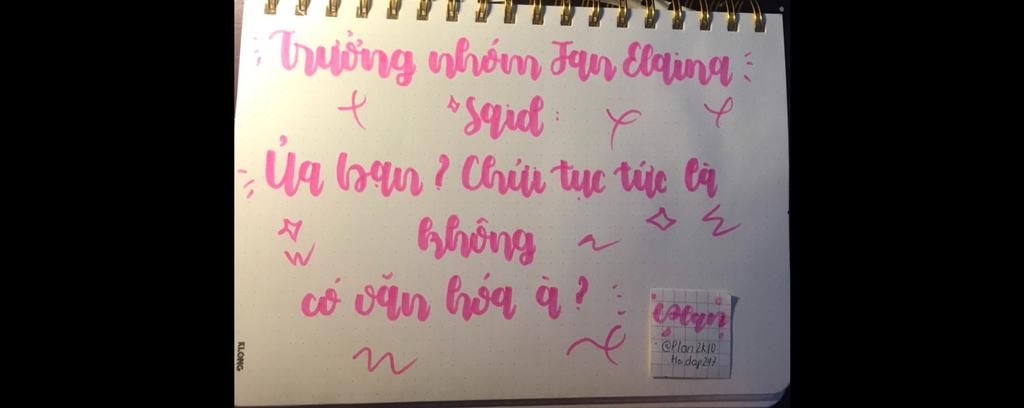 Trưởng nhóm Fan Elaina
Said:
Ủa bạn? Chửi tục tức là
không
có văn hóa à?
@Plan2k10
Hoidap247
KLONG